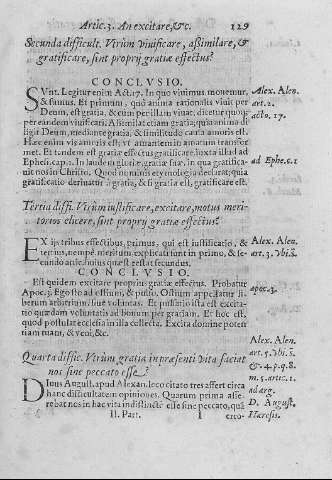 Artic. 3. An excitare, &c. 129
Secunda difficult. Vtrùm viuificare, assimilare, &
gratificare, sint proprij gratiæ effectus?
CONCLVSIO.
SVnt. Legitur enim Act. 17. In quo viuimus mouemur,
& sumus. Et primum, quò anima rationalis viuit per
Deum, est gratia, & cum per illam viuat, dicitur quoq;
per eandem viuificari. Assimilat etiam gratia, quia anima di
ligit Deum, mediante gratia, & similitudo causa amoris est.
Hæc enim vis amoris est, vt amantem in amatum transfor
met. Et tandem est gratiæ effectus gratificare iuxta illud ad
Ephesi. cap. 1. In laudem gloriæ gratiæ suæ, in qua gratifica-
uit nos in Christo. Quod nominis etymologia declarat; quia
gratificatio deriuatur à gratia, & si gratia est, gratificare est.
Alex. Alen.
art. 2.
acto. 17.
ad Ephe. c. 1
Tertia diffi. Vtrùm iustificare, excitare, motus meri-
torios elicere, sint proprij gratiæ effectus?
EX istribus effectibus, primus, qui est iustificatio, &
tertius, nempè meritum explicati sunt in primo, & se-
cundo
CONCLVSIO.
Est quidem excitare proprius gratiæ effectus. Probatur
Apoc. 3. Ego sto ad ostium, & pulso. Ostium appellatur li-
berum arbitrium, siue voluntas. Et pulsatio ista est excita-
tio quædam voluntatis ad bonum per gratiam. Et hoc est,
quod postulat ecclesia in illa collecta. Excita domine poten
tiam tuam, & veni, &c.
Alex. Alen.
art. 3. vbi. S.
apoc. 3.
Quarta diffic. Vtrùm gratia in præsenti vita faciat
nos sine peccato esse?
DIuus August. apud Alexan. loco citato tres assert circa
hanc difficultatem opiniones. Quarum prima asse-
rebat nos in hac vita indistinctè esse sine peccato, quā
Alex. Alen.
art. 5. vbi. S.
&. 4. p. q. 8.
m. 5. artic. 1.
ad arg.
D. August.
Hæresis.
II. Part. I circo-